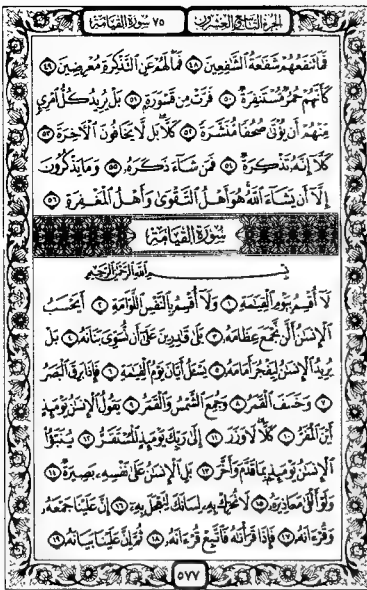 الجزء التاسع والعشرون ٧٥ سورة القيامة
فَمَا تَنفَعُهُمْ شَفَاعَةُ ٱلشَّٰفِعِينَ ٤٨ فَمَا لَهُمْ عَنِ ٱلتَّذْكِرَةِ مُعْرِضِينَ ٤٩
كَأَنَّهُمْ حُمُرٌ مُّسْتَنفِرَةٌ ٥٠ فَرَّتْ مِن قَسْوَرَةٍۭ ٥١ بَلْ يُرِيدُ كُلُّ ٱمْرِئٍ
مِّنْهُمْ أَن يُؤْتَىٰ صُحُفًا مُّنَشَّرَةً ٥٢ كَلَّا ۖ بَل لَّا يَخَافُونَ ٱلْءَاخِرَةَ ٥٣
كَلَّآ إِنَّهُۥ تَذْكِرَةٌ ٥٤ فَمَن شَآءَ ذَكَرَهُۥ ٥٥ وَمَا يَذْكُرُونَ
إِلَّآ أَن يَشَآءَ ٱللَّهُ ۚ هُوَ أَهْلُ ٱلتَّقْوَىٰ وَأَهْلُ ٱلْمَغْفِرَةِ ٥٦
سُورَةُ القِيَامَةِ
بِسْمِ ٱللَّهِ ٱلرَّحْمَٰنِ ٱلرَّحِيمِ
لَآ أُقْسِمُ بِيَوْمِ ٱلْقِيَٰمَةِ ١ وَلَآ أُقْسِمُ بِٱلنَّفْسِ ٱللَّوَّامَةِ ٢ أَيَحْسَبُ
ٱلْإِنسَٰنُ أَلَّن نَّجْمَعَ عِظَامَهُۥ ٣ بَلَىٰ قَٰدِرِينَ عَلَىٰٓ أَن نُّسَوِّىَ بَنَانَهُۥ ٤ بَلْ
يُرِيدُ ٱلْإِنسَٰنُ لِيَفْجُرَ أَمَامَهُۥ ٥ يَسْـَٔلُ أَيَّانَ يَوْمُ ٱلْقِيَٰمَةِ ٦ فَإِذَا بَرِقَ ٱلْبَصَرُ
٧ وَخَسَفَ ٱلْقَمَرُ ٨ وَجُمِعَ ٱلشَّمْسُ وَٱلْقَمَرُ ٩ يَقُولُ ٱلْإِنسَٰنُ يَوْمَئِذٍ
أَيْنَ ٱلْمَفَرُّ ١٠ كَلَّا لَا وَزَرَ ١١ إِلَىٰ رَبِّكَ يَوْمَئِذٍ ٱلْمُسْتَقَرُّ ١٢ يُنَبَّؤُا۟
ٱلْإِنسَٰنُ يَوْمَئِذٍۭ بِمَا قَدَّمَ وَأَخَّرَ ١٣ بَلِ ٱلْإِنسَٰنُ عَلَىٰ نَفْسِهِۦ بَصِيرَةٌ ١٤
وَلَوْ أَلْقَىٰ مَعَاذِيرَهُۥ ١٥ لَا تُحَرِّكْ بِهِۦ لِسَانَكَ لِتَعْجَلَ بِهِۦٓ ١٦ إِنَّ عَلَيْنَا جَمْعَهُۥ
وَقُرْءَانَهُۥ ١٧ فَإِذَا قَرَأْنَٰهُ فَٱتَّبِعْ قُرْءَانَهُۥ ١٨ ثُمَّ إِنَّ عَلَيْنَا بَيَانَهُۥ ١٩
٥٧٧